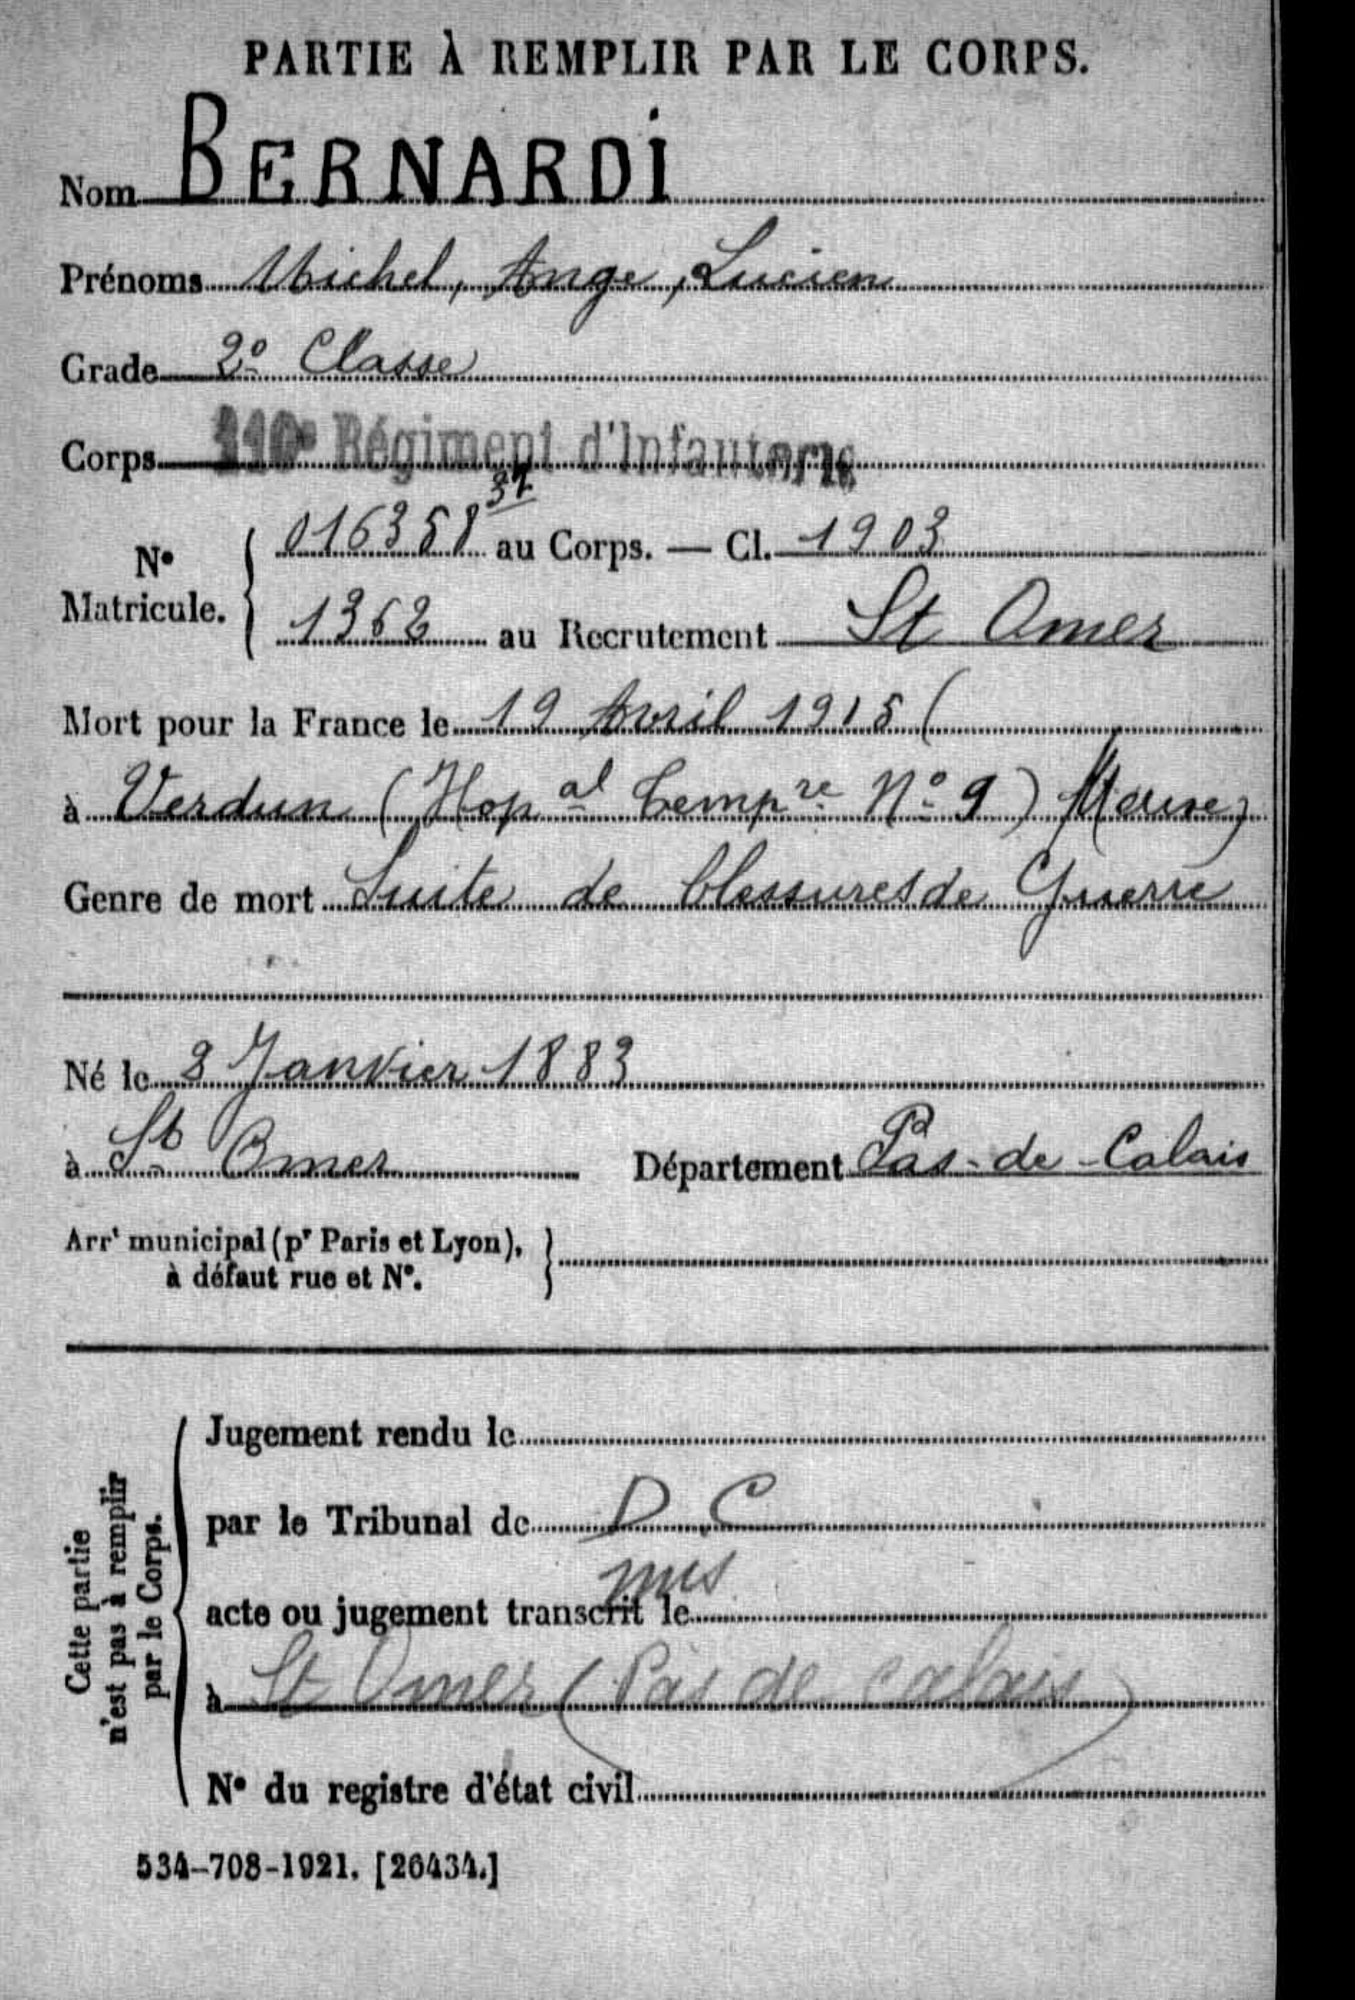 PARTIE À REMPLIR PAR LE CORPS.
Nom BERNARDI
Prénoms Michel, Ange, Lucien
Grade 2e Classe
Corps 110e Régiment d'Infanterie
37
No Matricule. 016358 au Corps. — Cl. 1903
1362 au Recrutement St Omer
Mort pour la France le 19 Avril 1915 (
à Verdun (Hopal tempre No 9) Meuse)
Genre de mort Suite de blessures de Guerre
Né le 8 Janvier 1883
à St Omer Département Pas-de-Calais
Arrt municipal (pr Paris et Lyon),
à défaut rue et No.
Cette partie
n'est pas à remplir
par le Corps.
Jugement rendu le
par le Tribunal de D C
mis
acte ou jugement transcrit le
à St Omer (Pas de Calais)
No du registre d'état civil
534-708-1921. [26434.]